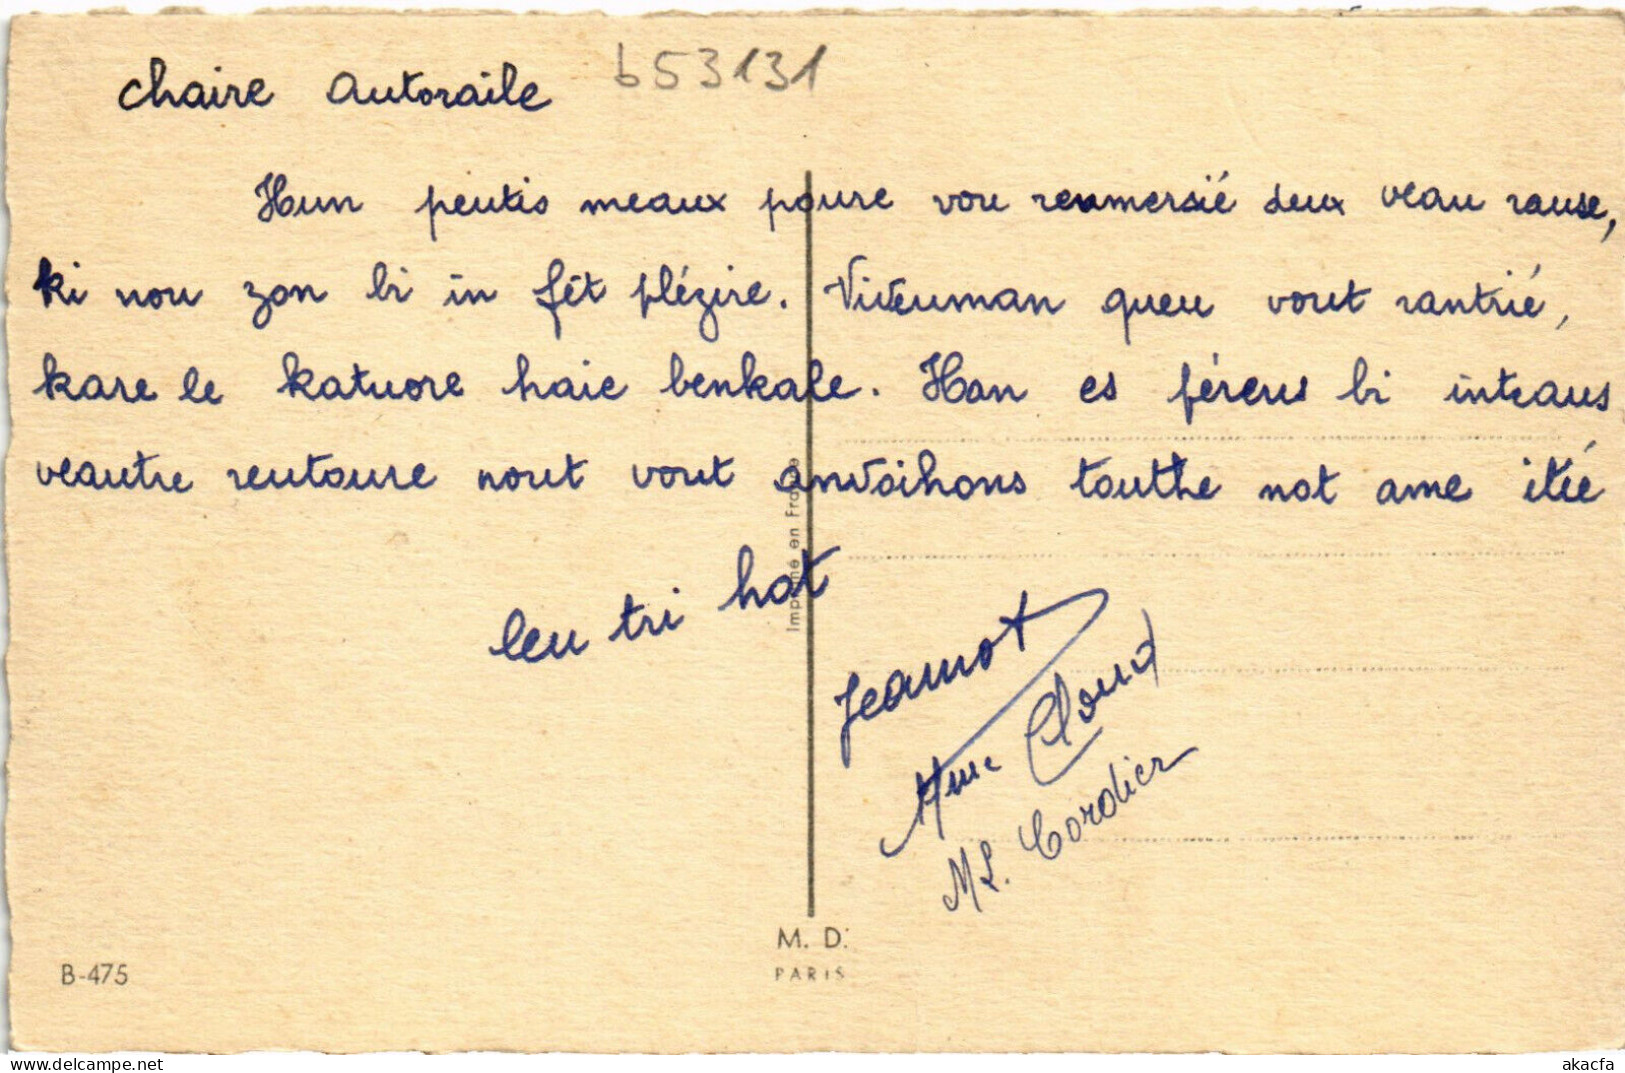 b53131
chaire autoraile
Hun peutis meaux poure vou reumersié deux veau rause,
ki nou zon bi in fét plézire. Viveuman queu vout rantrié,
kare le katuore haie benkale. Han es péreus bi inteaus
veautre reutoure nout vout anvoihons touthe not ame itié
leu tri hot
Jeannot
Mme Cloud
ML. Cordier
Imprimé en France
M. D.
PARIS
B-475
akacfa